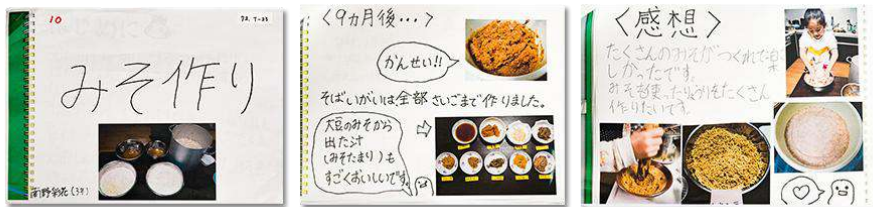 10
みそ作り
<9カ月後・・・>
かんせい!!
そばいがいは全部さいごまで作りました。
大豆のみそから
出た汁
(みそたまり)も
すごくおいしいです。
<感想>
たくさんのみそがつくれてほ
しかったです。
みそを使ったりょうりをたくさん
作りたいです